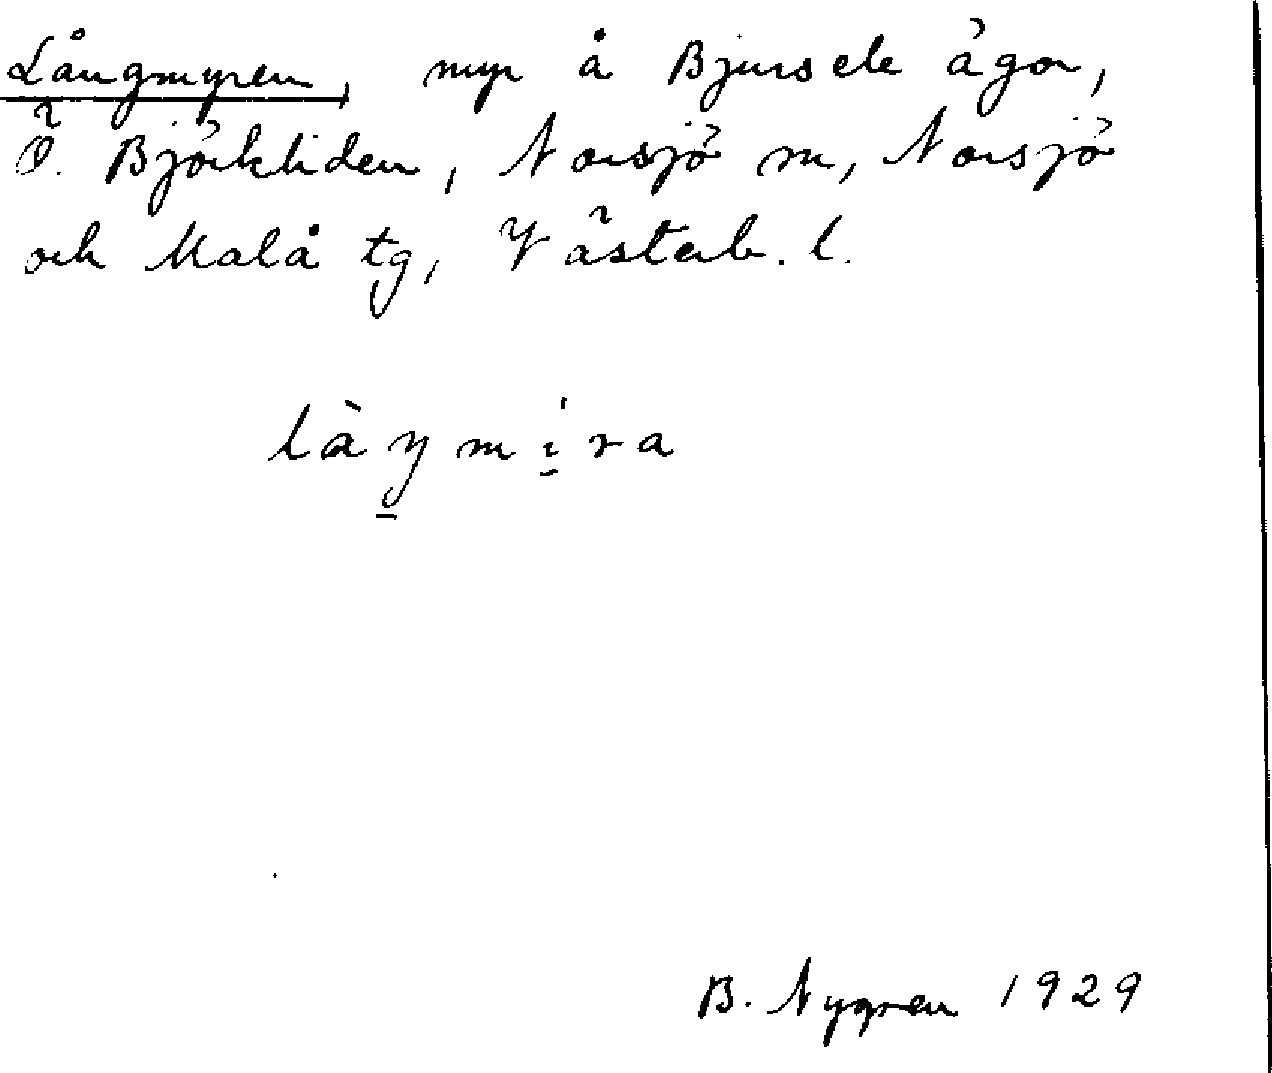 Långmyren, myr å Bjursele ägor,
Ö. Björkliden, Norsjö sn, Norsjö
och Malå tg, Västerb. l.
B. Nygren 1929